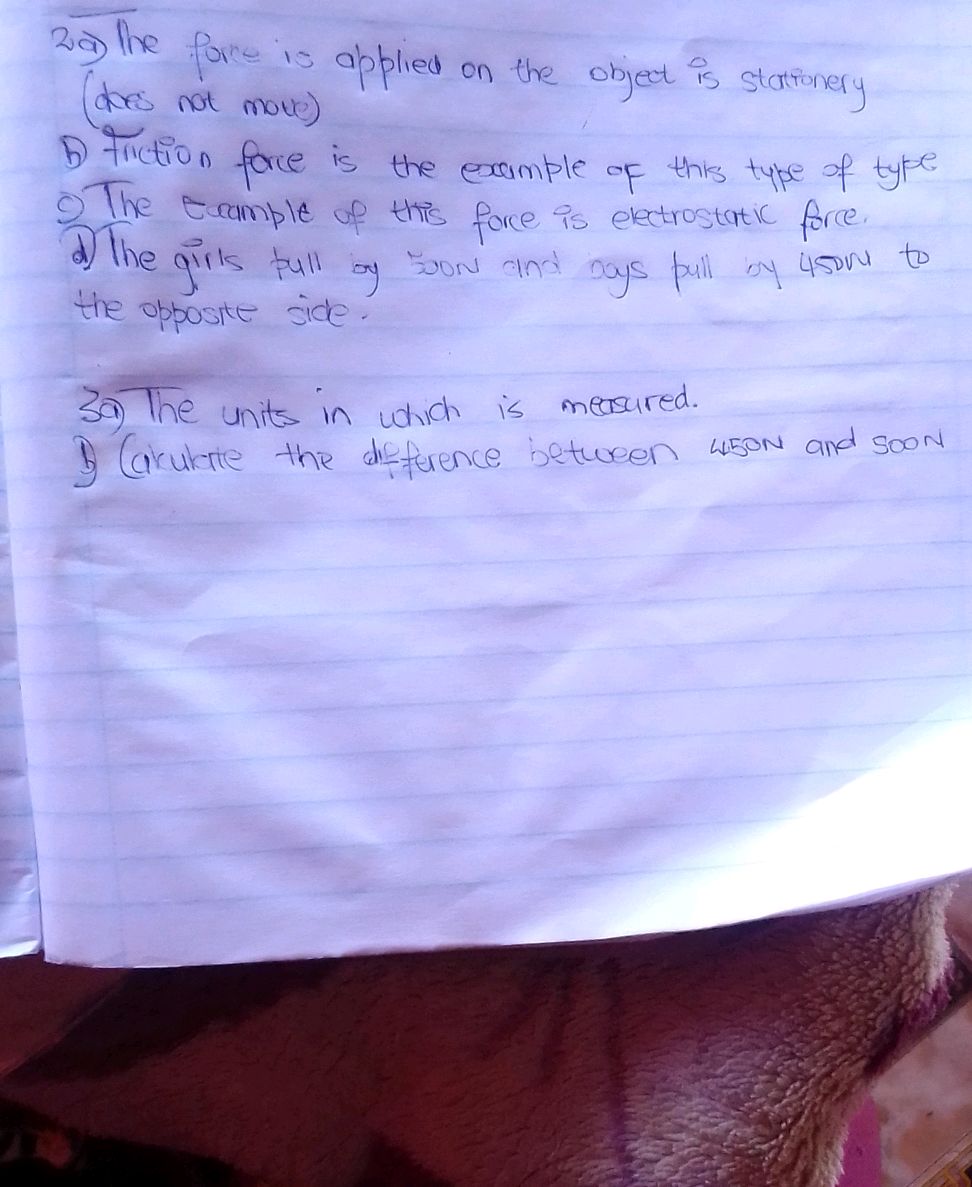 2a) The force is applied on the object is stationery
(does not move)
b) Friction force is the example of this type of type
c) The Example of this force is electrostatic force.
d) The girls pull by 500N and boys pull by 450N to
the opposite side.
3a) The units in which is measured.
b) Calculate the difference between 450N and 500N